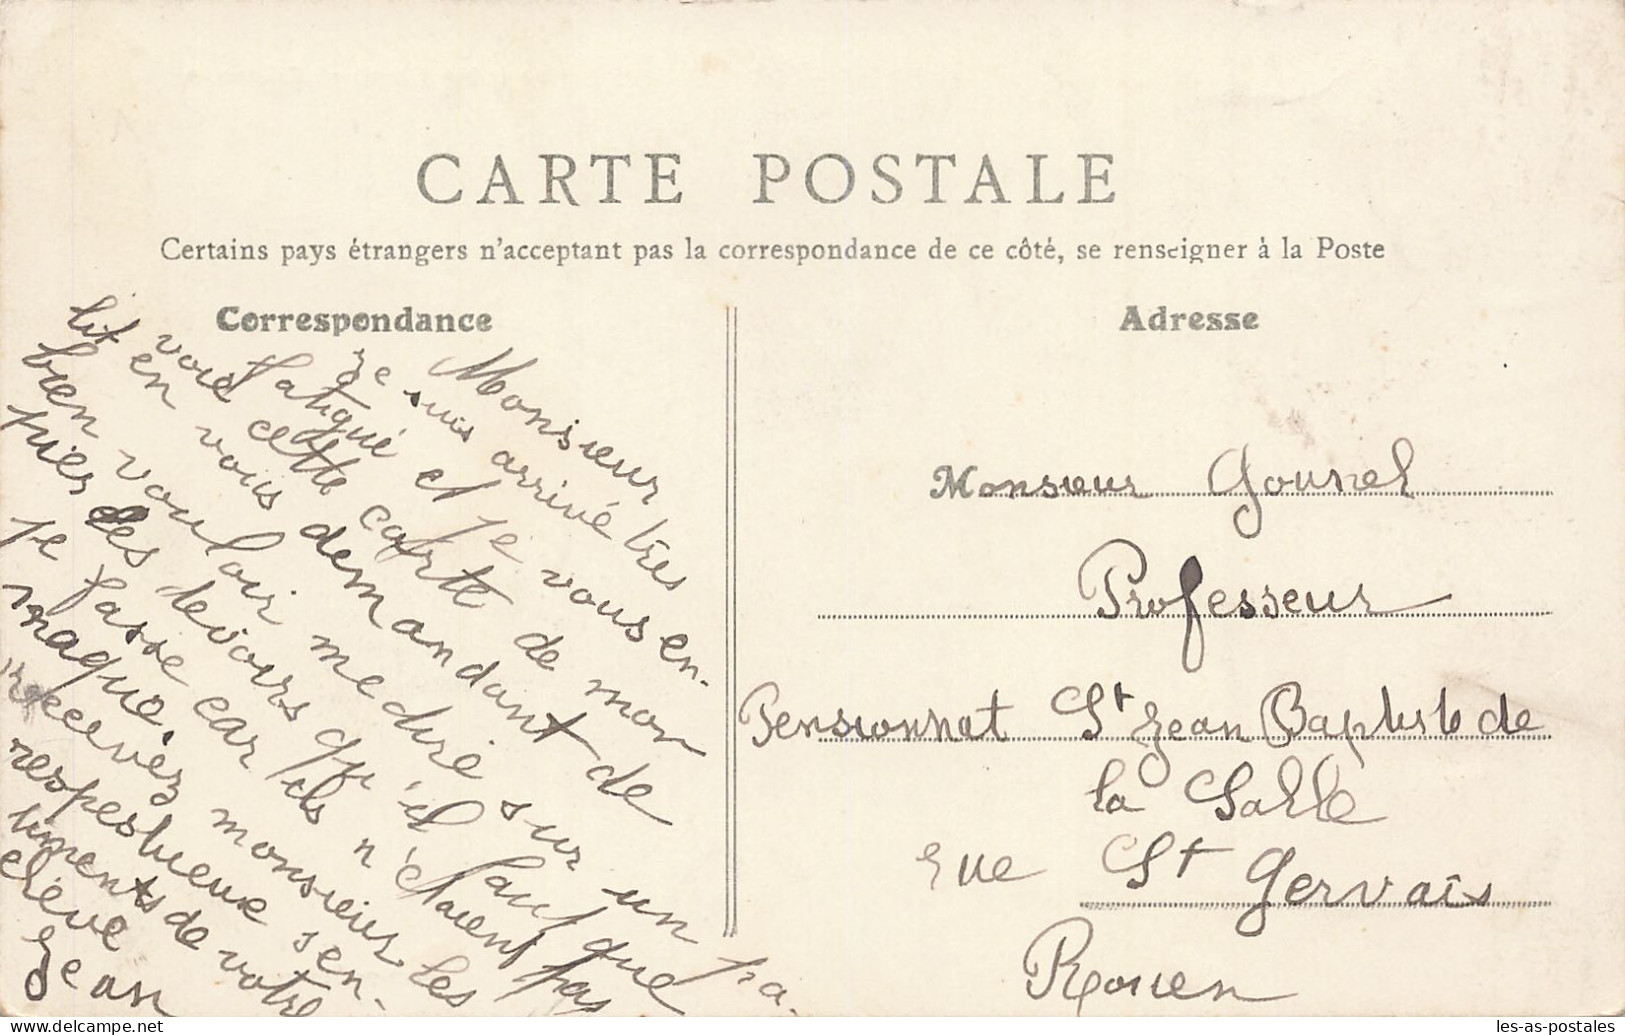 CARTE POSTALE
Certains pays étrangers n'acceptant pas la correspondance de ce côté, se renseigner à la Poste
Correspondance
Monsieur
je suis arrivé très
fatigué et je vous en-
voie cette carte de mon
lit en vous demandant de
bien vouloir me dire sur un pa-
pier les devoirs qu'il faut que
je fasse car ils n'étaient pas
maqué.
recevez monsieur les
respectueux sen-
timents de votre
élève
Jean
Adresse
Monsieur Gounel
Professeur
Pensionnat St Jean Baptiste de
la Salle
rue St Gervais
Rouen
les-as-postales
delcampe.net